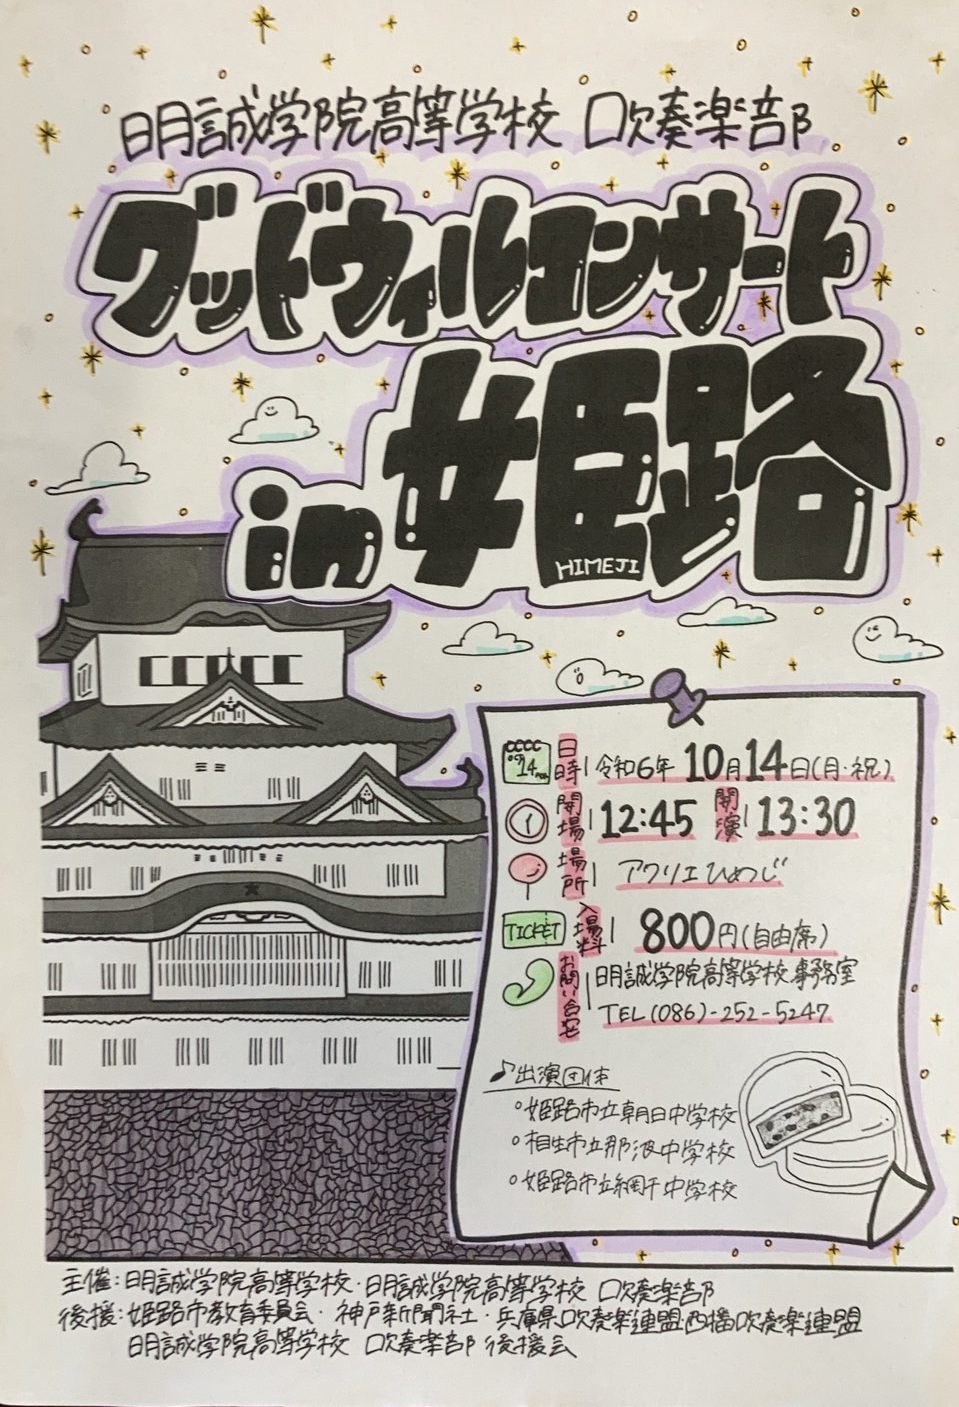 明誠学院高等学校 吹奏楽部
グッドウィルコンサート
in 姫路
HIMEJI
OCT 14 MON
日時 令和6年 10月14日(月・祝)
開場 12:45 開演 13:30
場所 アクリエひめじ
TICKET 入場料 800円(自由席)
お問い合わせ 明誠学院高等学校事務室
TEL(086)-252-5247
♪出演団体
○姫路市立朝日中学校
○相生市立那波中学校
○姫路市立網干中学校
主催:明誠学院高等学校・明誠学院高等学校 吹奏楽部
後援:姫路市教育委員会・神戸新聞社・兵庫県吹奏楽連盟・西播吹奏楽連盟
明誠学院高等学校 吹奏楽部 後援会